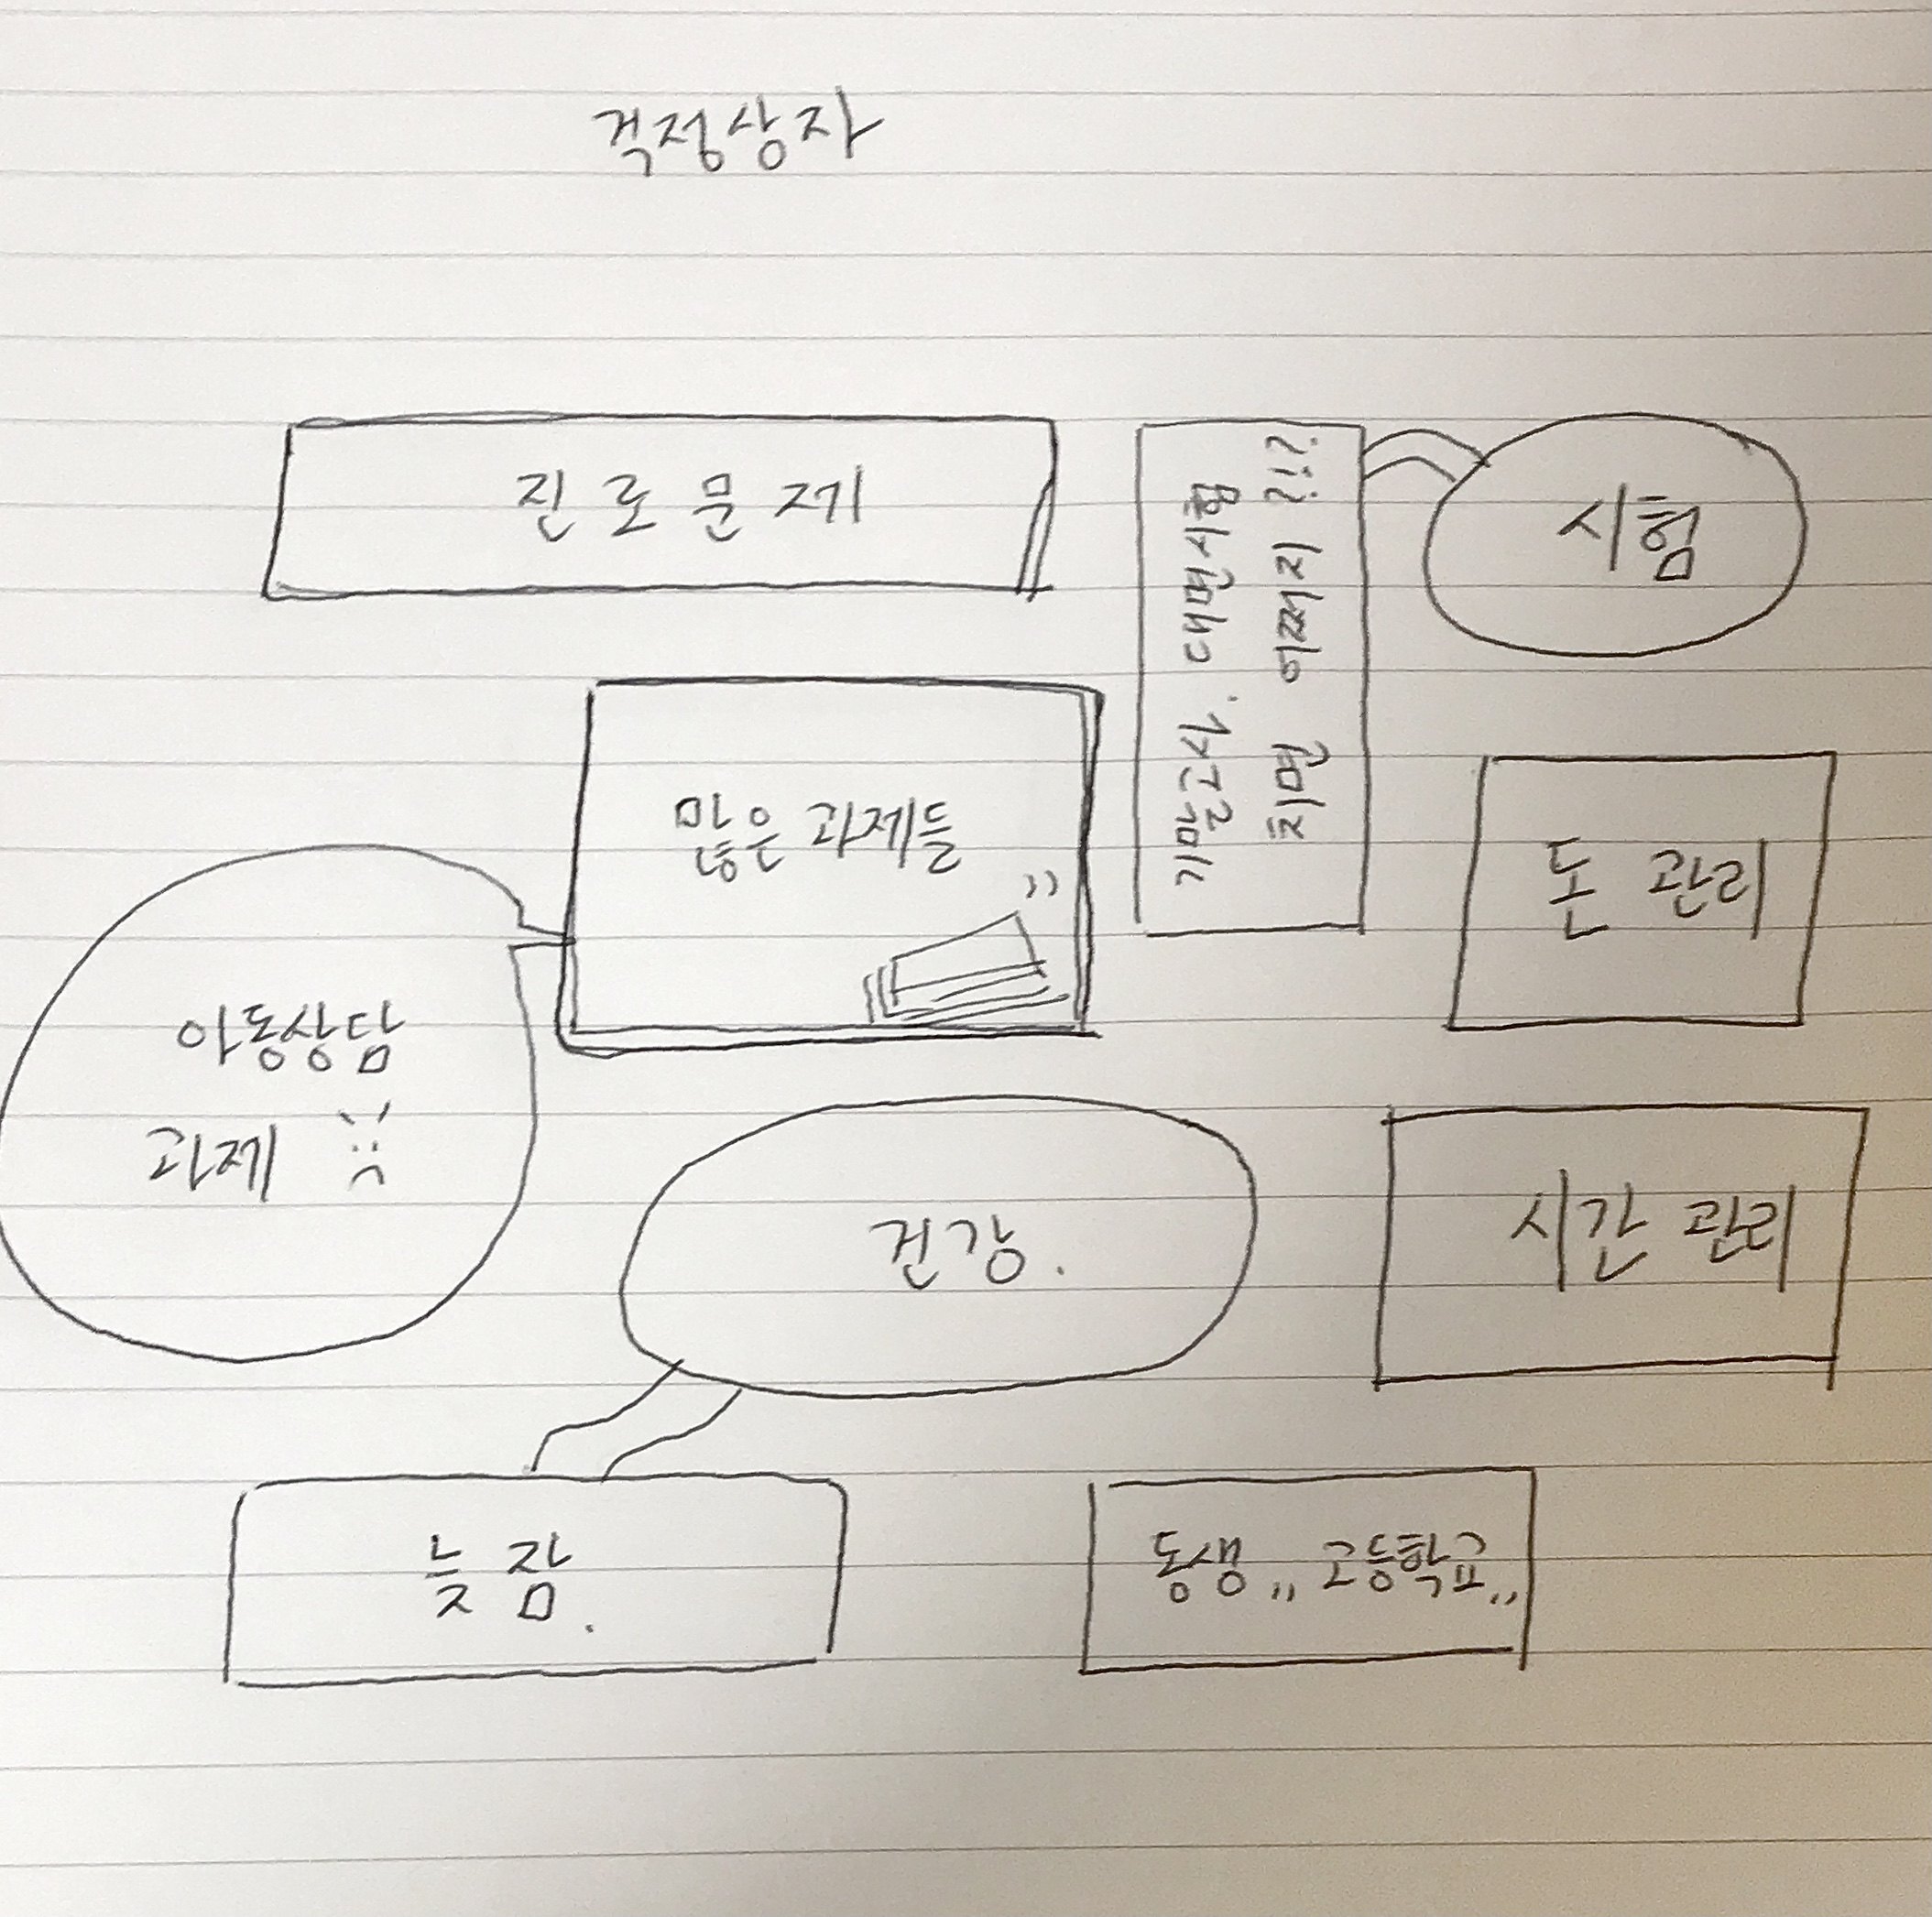 걱정상자
진로문제
기말고사. 대면시험
치면 어쩌지?!?
시험
많은 과제들
돈 관리
아동상담
과제
건강.
시간 관리
늦잠.
동생,, 고등학교,,